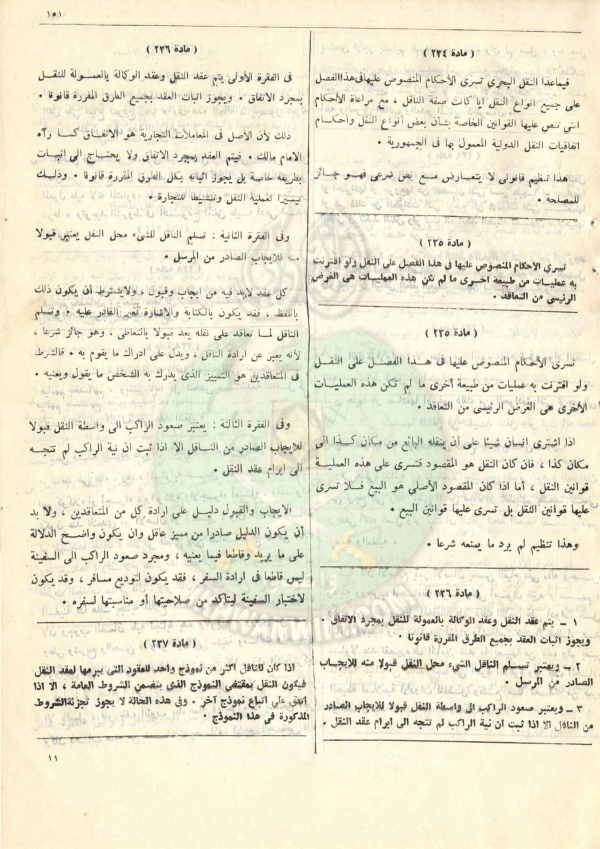 ١٥١
( مادة ٢٣٤ )
فيماعدا النقل البحرى تسرى الأحكام المنصوص عليها فى هذا الفصل
على جميع انواع النقل ايا كانت صفة الناقل ، مع مراعاة الأحكام
التى تنص عليها القوانين الخاصة بشأن بعض أنواع النقل وأحكام
اتفاقيات النقل الدولية المعمول بها فى الجمهورية .
هذا تنظيم قانونى لا يتعارض مع نص شرعى فهو جائز
للمصلحة .
( مادة ٢٣٥ )
تسرى الأحكام المنصوص عليها فى هذا الفصل على النقل ولو اقترنت
به عمليات من طبيعة اخرى ما لم تكن هذه العمليات هى الغرض
الرئيسى من التعاقد .
( مادة ٢٣٥ )
تسرى الأحكام المنصوص عليها فى هذا الفصل على النقل
ولو اقترنت به عمليات من طبيعة أخرى ما لم تكن هذه العمليات
الأخرى هى الغرض الرئيسى من التعاقد .
اذا اشترى انسان شيئا على أن ينقله البائع من مكان كذا الى
مكان كذا ، فان كان النقل هو المقصود فتسرى على هذه العملية
قوانين النقل ، أما اذا كان المقصود الأصلى هو البيع فلا تسرى
عليها قوانين النقل بل تسرى عليها قوانين البيع .
وهذا تنظيم لم يرد ما يمنعه شرعا .
( مادة ٢٣٦ )
١ – يتم عقد النقل وعقد الوكالة بالعمولة للنقل بمجرد الاتفاق .
ويجوز اثبات العقد بجميع الطرق المقررة قانونا .
٢ – ويعتبر تسلم الناقل الشىء محل النقل قبولا منه للايجاب
الصادر من المرسل .
٣ – ويعتبر صعود الراكب الى واسطة النقل قبولا للايجاب الصادر
من الناقل الا اذا ثبت ان نية الراكب لم تتجه الى ابرام عقد النقل .
( مادة ٢٣٦ )
فى الفقرة الأولى يتم عقد النقل وعقد الوكالة بالعمولة للنقل
بمجرد الاتفاق . ويجوز اثبات العقد بجميع الطرق المقررة قانونا .
ذلك لأن الأصل فى المعاملات التجارية هو الاتفاق كما رآه
الامام مالك . فيتم العقد بمجرد الاتفاق ولا يحتاج الى اثبات
بطريقة خاصة بل يجوز اثباته بكل الطرق المقررة قانونا . وذلك
تيسيرا لعملية النقل وتنشيطا للتجارة .
وفى الفقرة الثانية : تسلم الناقل للشىء محل النقل يعتبر قبولا
منه للايجاب الصادر من المرسل .
كل عقد لابد فيه من ايجاب وقبول ، ولايشترط أن يكون ذلك
باللفظ ، فقد يكون بالكتابة والاشارة لغير القادر عليه . وتسلم
الناقل لما تعاقد على نقله يعد قبولا بالتعاطى ، وهو جائز شرعا ،
لأنه يعبر عن ارادة الناقل ، ويدل على ادراك ما يقوم به . فالشرط
فى المتعاقدين هو التمييز الذى يدرك به الشخص ما يقول ويعنيه .
وفى الفقرة الثالثة : يعتبر صعود الراكب الى واسطة النقل قبولا
للايجاب الصادر من الناقل الا اذا ثبت ان نية الراكب لم تتجه
الى ابرام عقد النقل .
الايجاب والقبول دليل على ارادة كل من المتعاقدين ، ولا بد
أن يكون الدليل صادرا من مميز عاقل وان يكون واضح الدلالة
على ما يريد وقاطعا فيما يعنيه ، ومجرد صعود الراكب الى السفينة
ليس قاطعا فى ارادة السفر ، فقد يكون لتوديع مسافر ، وقد يكون
لاختبار السفينة ليتأكد من صلاحيتها أو مناسبتها لسفره .
( مادة ٢٣٧ )
اذا كان للناقل اكثر من نموذج واحد للعقود التى يبرمها لعقد النقل
فيكون النقل بمقتضى النموذج الذى يتضمن الشروط العامة ، الا اذا
اتفق على اتباع نموذج آخر . وفى هذه الحالة لا يجوز تجزئة الشروط
المذكورة فى هذا النموذج .
١١